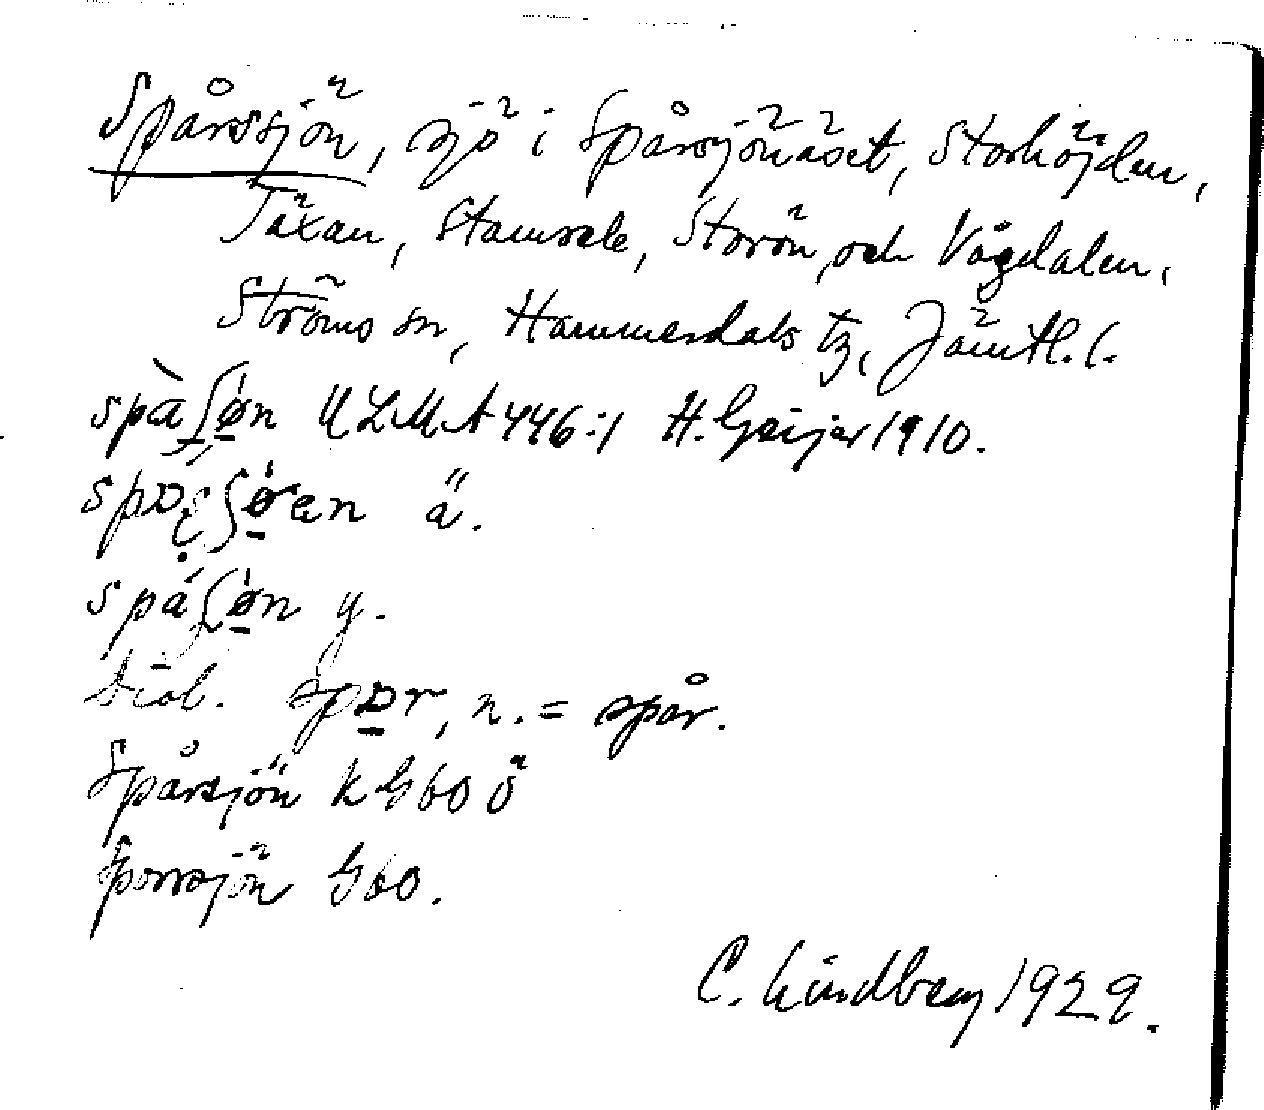 Spårssjön, sjö i Spårsjönäset, Storhöjden,
Täxan, Stamsele, Storön och Vågdalen,
Ströms sn, Hammerdals tg, Jämtl. l.
ULMA 446:1 H. Geijer 1910.
ä.
y.
Dial. spɒr, n. = spår.
Spårsjön k G60 ö
Sporrsjön G60.
C. Lindberg 1929.